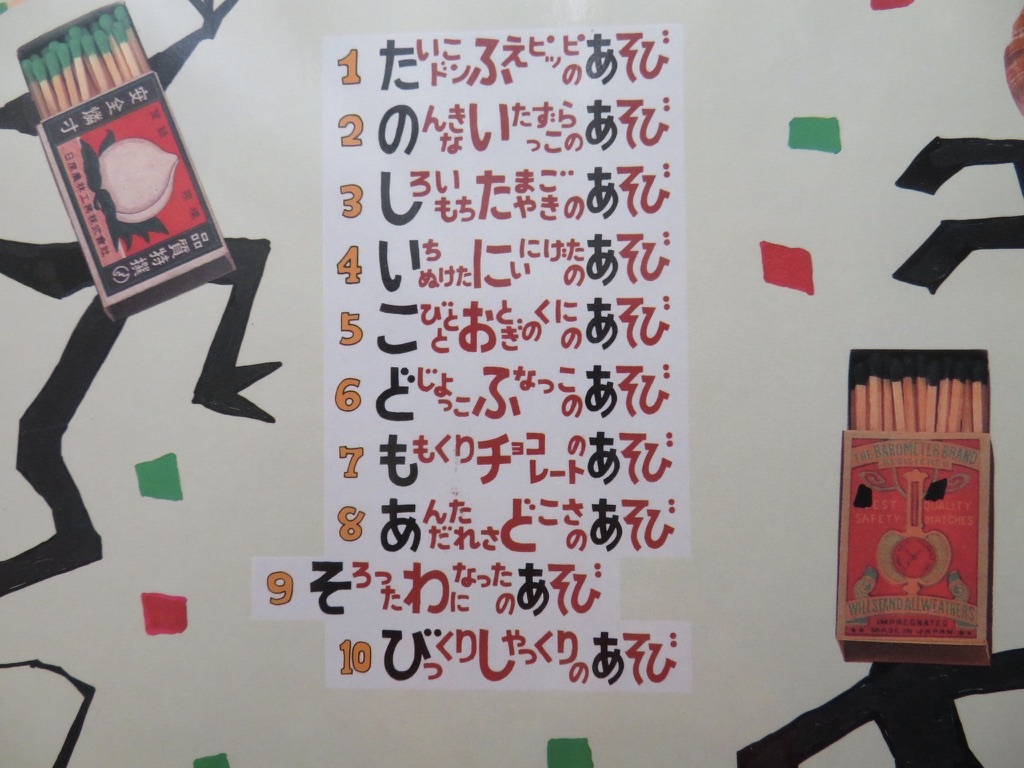 1 たいこドンふえピッピのあそび
2 のんきないたずらっこのあそび
3 しろいもちたまごやきのあそび
4 いちぬけたにいにげたのあそび
5 こびとととおとぎのくにのあそび
6 どじょっこふなっこのあそび
7 ももくりチョコレートのあそび
8 あんただれさどこさのあそび
9 そろったわになったのあそび
10 びっくりしゃっくりのあそび
安全燐寸
品質特撰
THE BAROMETER BRAND
REGISTERED
BEST QUALITY
SAFETY MATCHES
WILL STAND ALL WEATHERS
IMPREGNATED
MADE IN JAPAN